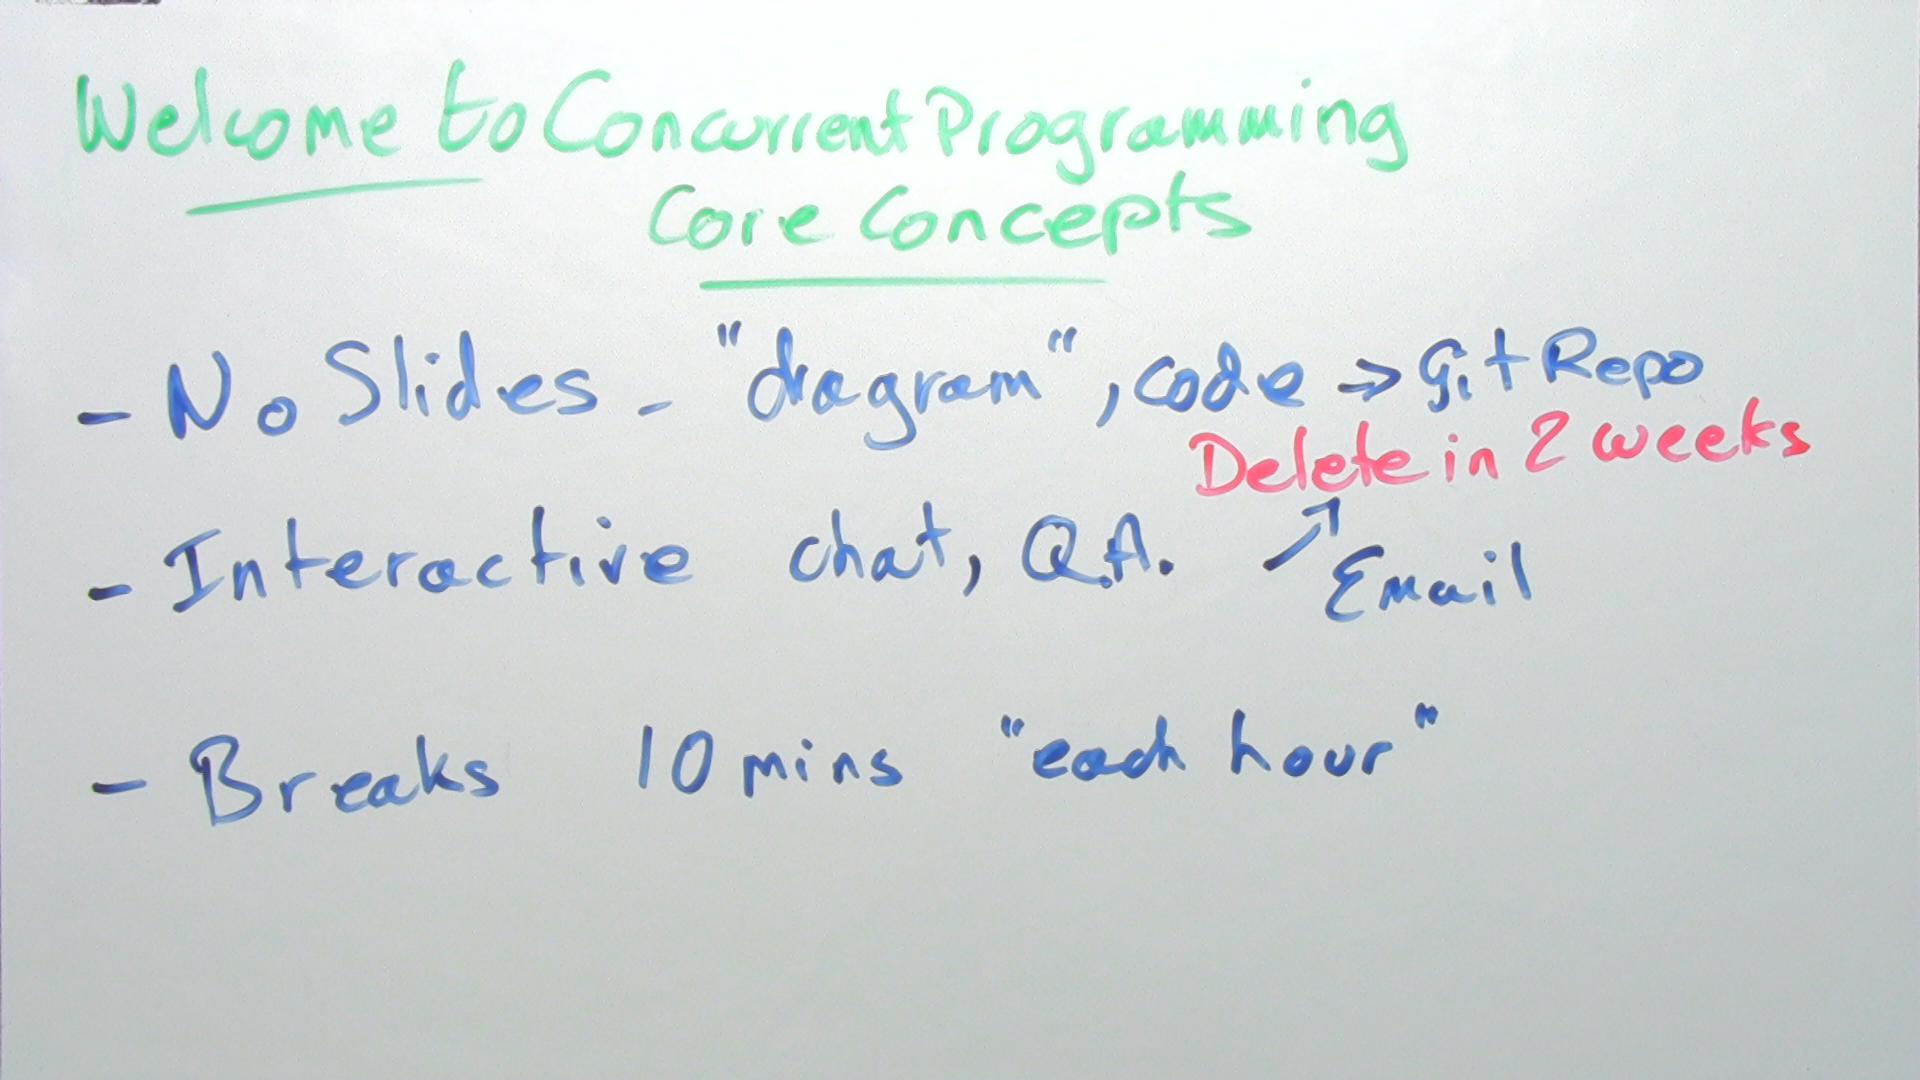 Welcome to Concurrent Programming
Core Concepts
- No Slides - "diagram", code → Git Repo
Delete in 2 weeks
- Interactive chat, Q.A. ↗ Email
- Breaks 10 mins "each hour"